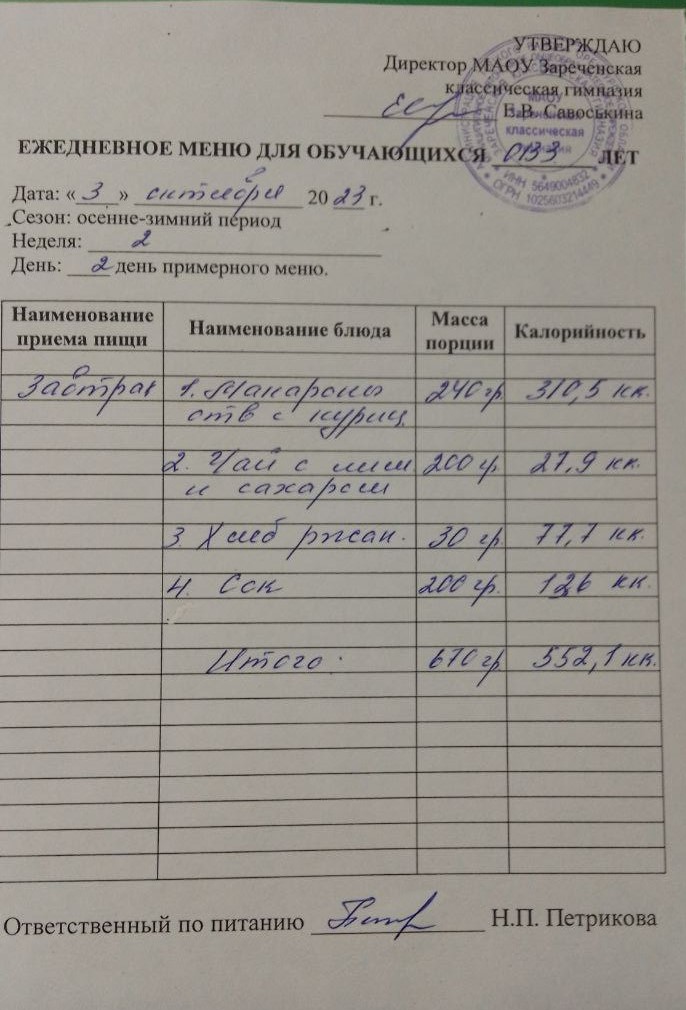 УТВЕРЖДАЮ
Директор МАОУ Зареченская
классическая гимназия
Е.В. Савоськина
МАОУ
Зареченская
классическая
гимназия
ИНН 5649004832
ОГРН 1025603214449
ЕЖЕДНЕВНОЕ МЕНЮ ДЛЯ ОБУЧАЮЩИХСЯ ОВЗ ЛЕТ
Дата: « 3 » октября 20 23 г.
Сезон: осенне-зимний период
Неделя: 2
День: 2 день примерного меню.
Наименование приема пищи Наименование блюда Масса порции Калорийность
Завтрак 1. Макароны 240 гр 310,5 кк.
отв с куриц
2. Чай с лим 200 гр. 27,9 кк.
и сахаром
3. Хлеб ржан. 30 гр 77,7 кк.
4. Сок 200 гр. 126 кк.
Итого. 670 гр 552,1 кк.
Ответственный по питанию Н.П. Петрикова